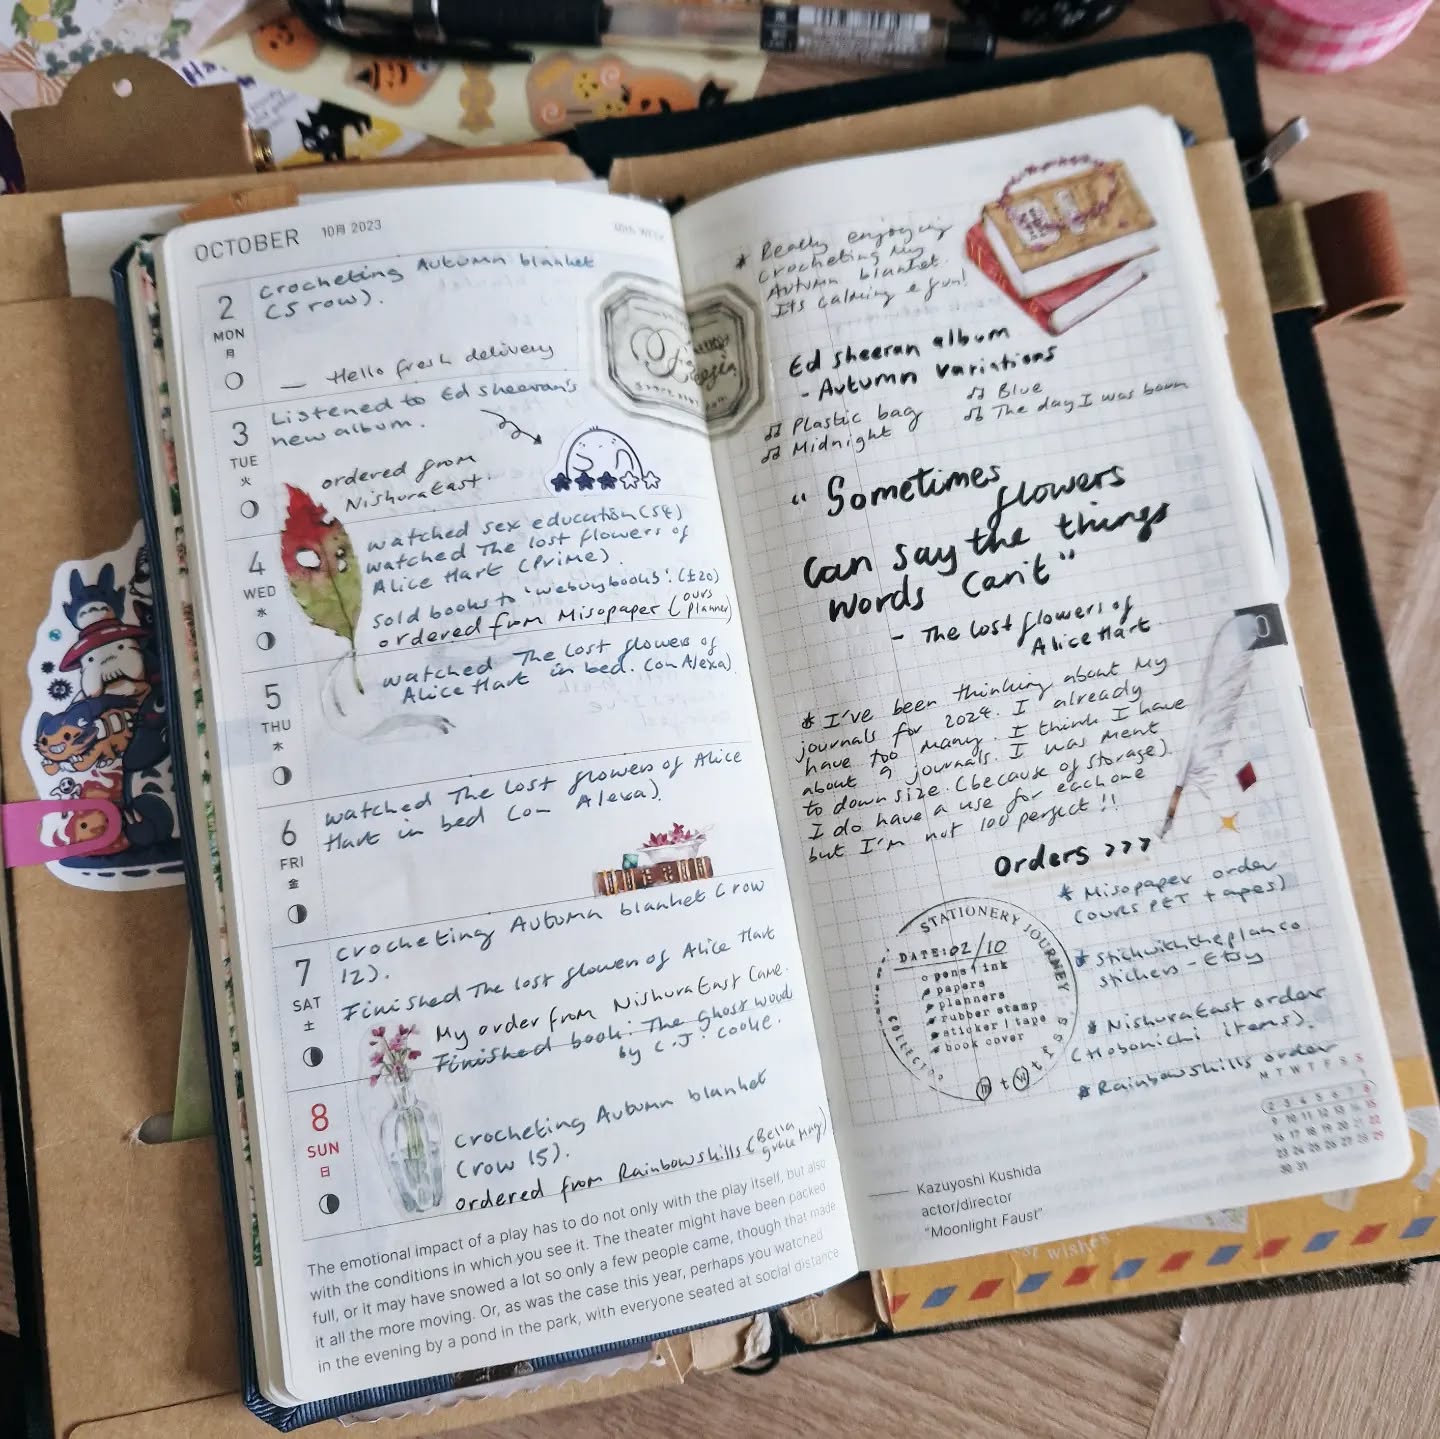 OCTOBER 10月 2023
40th WEEK
2
MON
月
Crocheting Autumn blanket
(5 row).
— Hello fresh delivery
3
TUE
火
Listened to Ed sheeran's
new album.
ordered from
NishuraEast.
4
WED
水
watched sex education (S4)
watched The lost flowers of
Alice Hart (Prime).
Sold books to 'webuybooks'. (£20)
ordered from Misopaper (ours
planner)
5
THU
木
watched The lost flowers of
Alice Hart in bed. (on Alexa)
6
FRI
金
watched The Lost flowers of Alice
Hart in bed (on Alexa).
7
SAT
土
Crocheting Autumn blanket (row
12).
Finished The lost flowers of Alice Hart
My order from NishuraEast came.
Finished book: The Ghost wood
by C.J. Cooke.
8
SUN
日
Crocheting Autumn blanket
(row 15).
ordered from Rainbowskills (Bella
grace mag)
The emotional impact of a play has to do not only with the play itself, but also
with the conditions in which you see it. The theater might have been packed
full, or it may have snowed a lot so only a few people came, though that made
it all the more moving. Or, as was the case this year, perhaps you watched
in the evening by a pond in the park, with everyone seated at social distance
* Really enjoying
crocheting my
Autumn blanket.
Its calming & fun!
Ed sheeran album
- Autumn variations
♫ Plastic bag
♫ Midnight
♫ Blue
♫ The day I was born
"Sometimes
flowers
Can say the things
words can't"
- The lost flowers of
Alice Hart
* I've been thinking about my
journals for 2024. I already
have too many. I think I have
about 9 journals. I was ment
to downsize. (because of storage)
I do have a use for each one
but I'm not 100 perfect!!
Orders >>>
* Misopaper order
(ours PET + apes)
* Stickwiththeplanco
stickers - Etsy
* NishuraEast order
(Hobonichi items).
* Rainbowskills order
STATIONERY JOURNEY
DATE: 02/10
pens / ink
papers
planners
rubber stamp
sticker / tape
book cover
COLLECTED
m t w t f s s
M T W T F S S
1
2 3 4 5 6 7 8
9 10 11 12 13 14 15
16 17 18 19 20 21 22
23 24 25 26 27 28 29
30 31
Kazuyoshi Kushida
actor/director
"Moonlight Faust"
10
best wishes